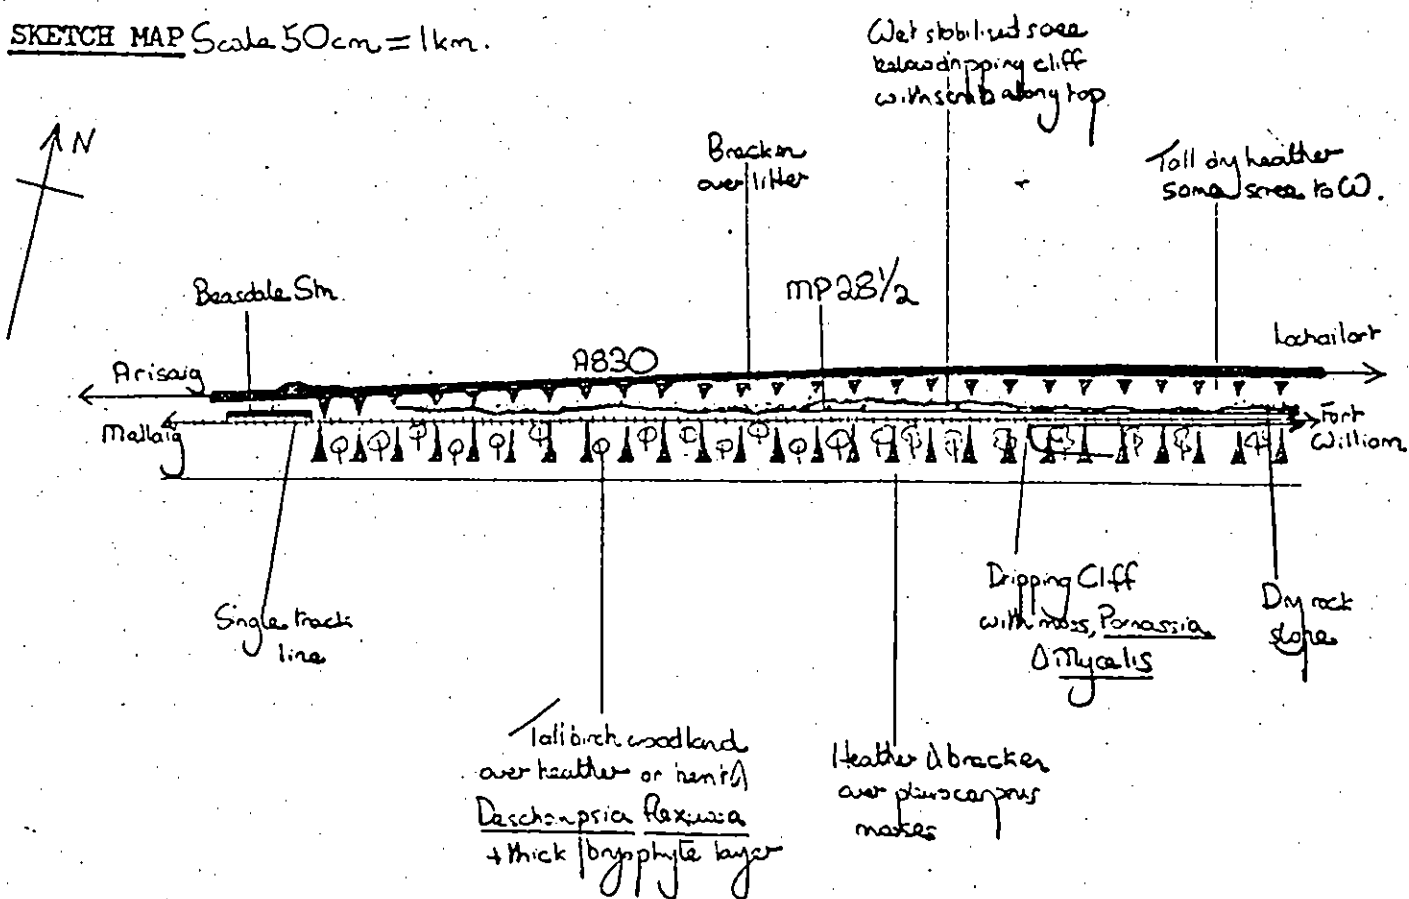 SKETCH MAP Scale 50cm = 1km.
Wet stabilised scree
below dripping cliff
with scrub along top
N
Bracken
over litter
Tall dry heather
some scree to W.
Beasdale Stn.
MP 28 1/2
Lochailort
A830
Arisaig
Mallaig
Fort
William
Single track
line
Dripping Cliff
with moss, Parnassia
& Mycelis
Dry rock
slope
Tall birch woodland
over heather or
Deschampsia flexuosa
+ thick bryophyte layer
Heather & bracken
over pleurocarpous
mosses